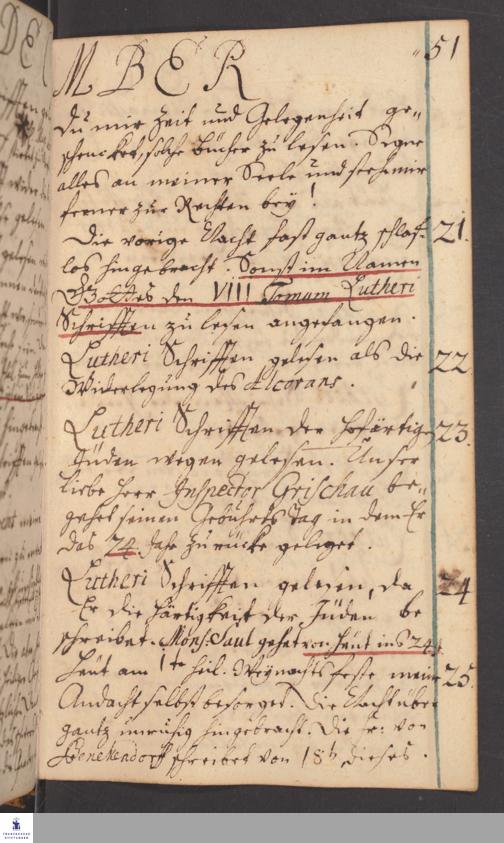 MBER 51
du mir Zeit und Gelegenheit ge-
schencket, solche Bücher zu lesen. Segne
alles an meiner Seele und stehe mir
ferner zur Rechten bey!
Die vorige Nacht fast gantz schlaf- 21.
los hingebracht. Sonst im Namen
GOttes den VIII Tomum Lutheri
Schrifften zu lesen angefangen.
Lutheri Schrifften gelesen als die 22
Widerlegung des Alcorans.
Lutheri Schrifften der hofärtigen 23.
Jüden wegen gelesen. Unser
liebe Herr Inspector Grischau be-
gehet seinen Gebuhrts Tag in dem Er
das 24. Jahr zurücke geleget.
Lutheri Schrifften gelesen, da 24
Er die Härtigkeit der Jüden be
schreibet. Mons: Saul gehet von heut ins 24.
Heut am 1te heil. Weynachts feste meine 25.
Andacht selbst besorget. Die Nacht über
gantz unruhig hingebracht. Die Fr: von
Benekendorff schreibet von 18t dieses.
FRANCKESCHE
STIFTUNGEN